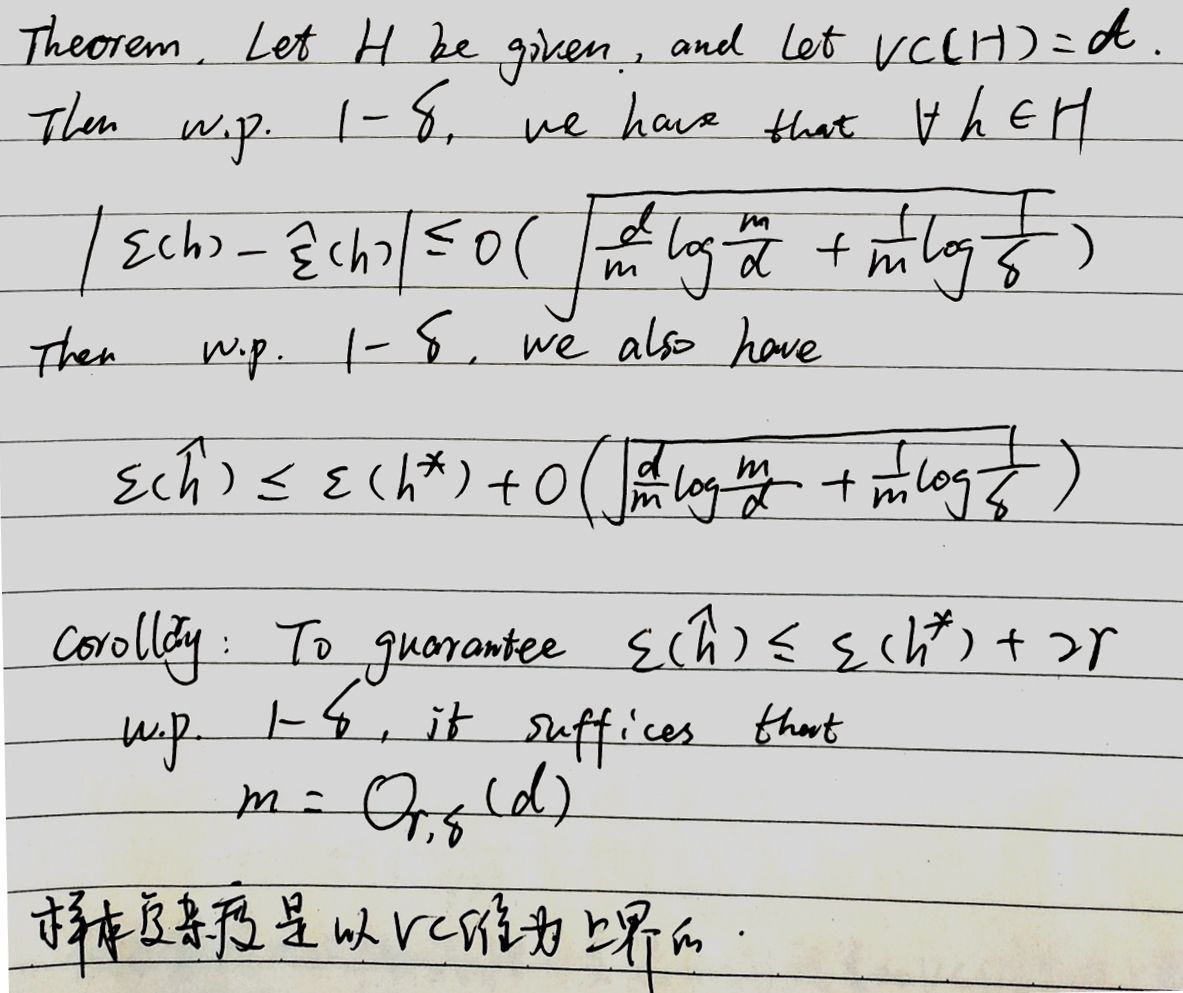 Theorem. Let H be given, and let VC(H)=d.
Then w.p. 1-δ, we have that ∀ h ∈ H
|ε(h) - ε̂(h)| ≤ O(√(d/m log m/d + 1/m log 1/δ))
Then w.p. 1-δ, we also have
ε(ĥ) ≤ ε(h*) + O(√(d/m log m/d + 1/m log 1/δ))
Corollary: To guarantee ε(ĥ) ≤ ε(h*) + 2γ
w.p. 1-δ, it suffices that
m = O_{γ,δ}(d)
样本复杂度是以VC维为上界的.